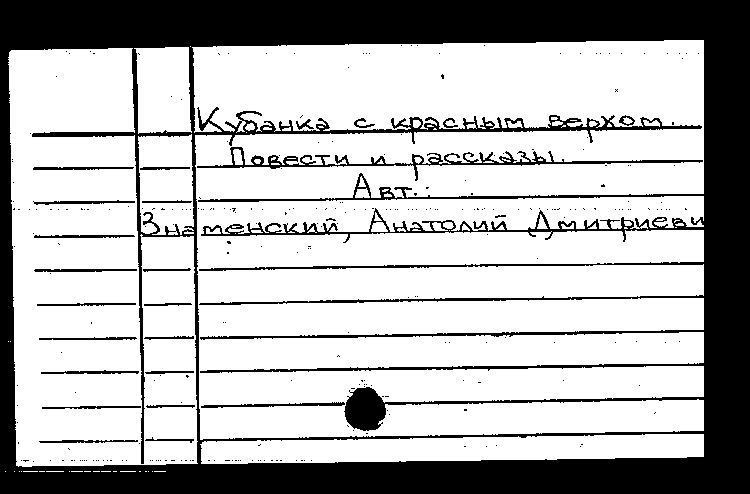 Кубанка с красным верхом.
Повести и рассказы.
Авт.:
Знаменский, Анатолий Дмитриеви